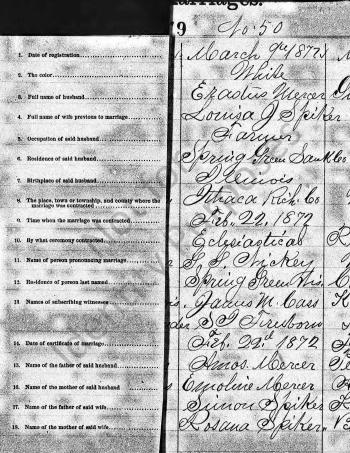 Marriages.
No. 50
1. Date of registration March 9th 1872
2. The color White
3. Full name of husband Exadius Mercer
4. Full name of wife previous to marriage Louisa J Spiker
5. Occupation of said husband Farmer
6. Residence of said husband Spring Green Sauk Co
7. Birthplace of said husband Illinois
8. The place, town or township, and county where the
marriage was contracted Ithaca Rich. Co
9. Time when the marriage was contracted Feb. 22, 1872
10. By what ceremony contracted Eclesiastical
11. Name of person pronouncing marriage
12. Residence of person last named Spring Green Wis.
13. Names of subscribing witnesses James M. Cass
14. Date of certificate of marriage Feb. 22d 1872
15. Name of the father of said husband Amos Mercer
16. Name of the mother of said husband Emoline Mercer
17. Name of the father of said wife Simon Spiker
18. Name of the mother of said wife Rosana Spiker